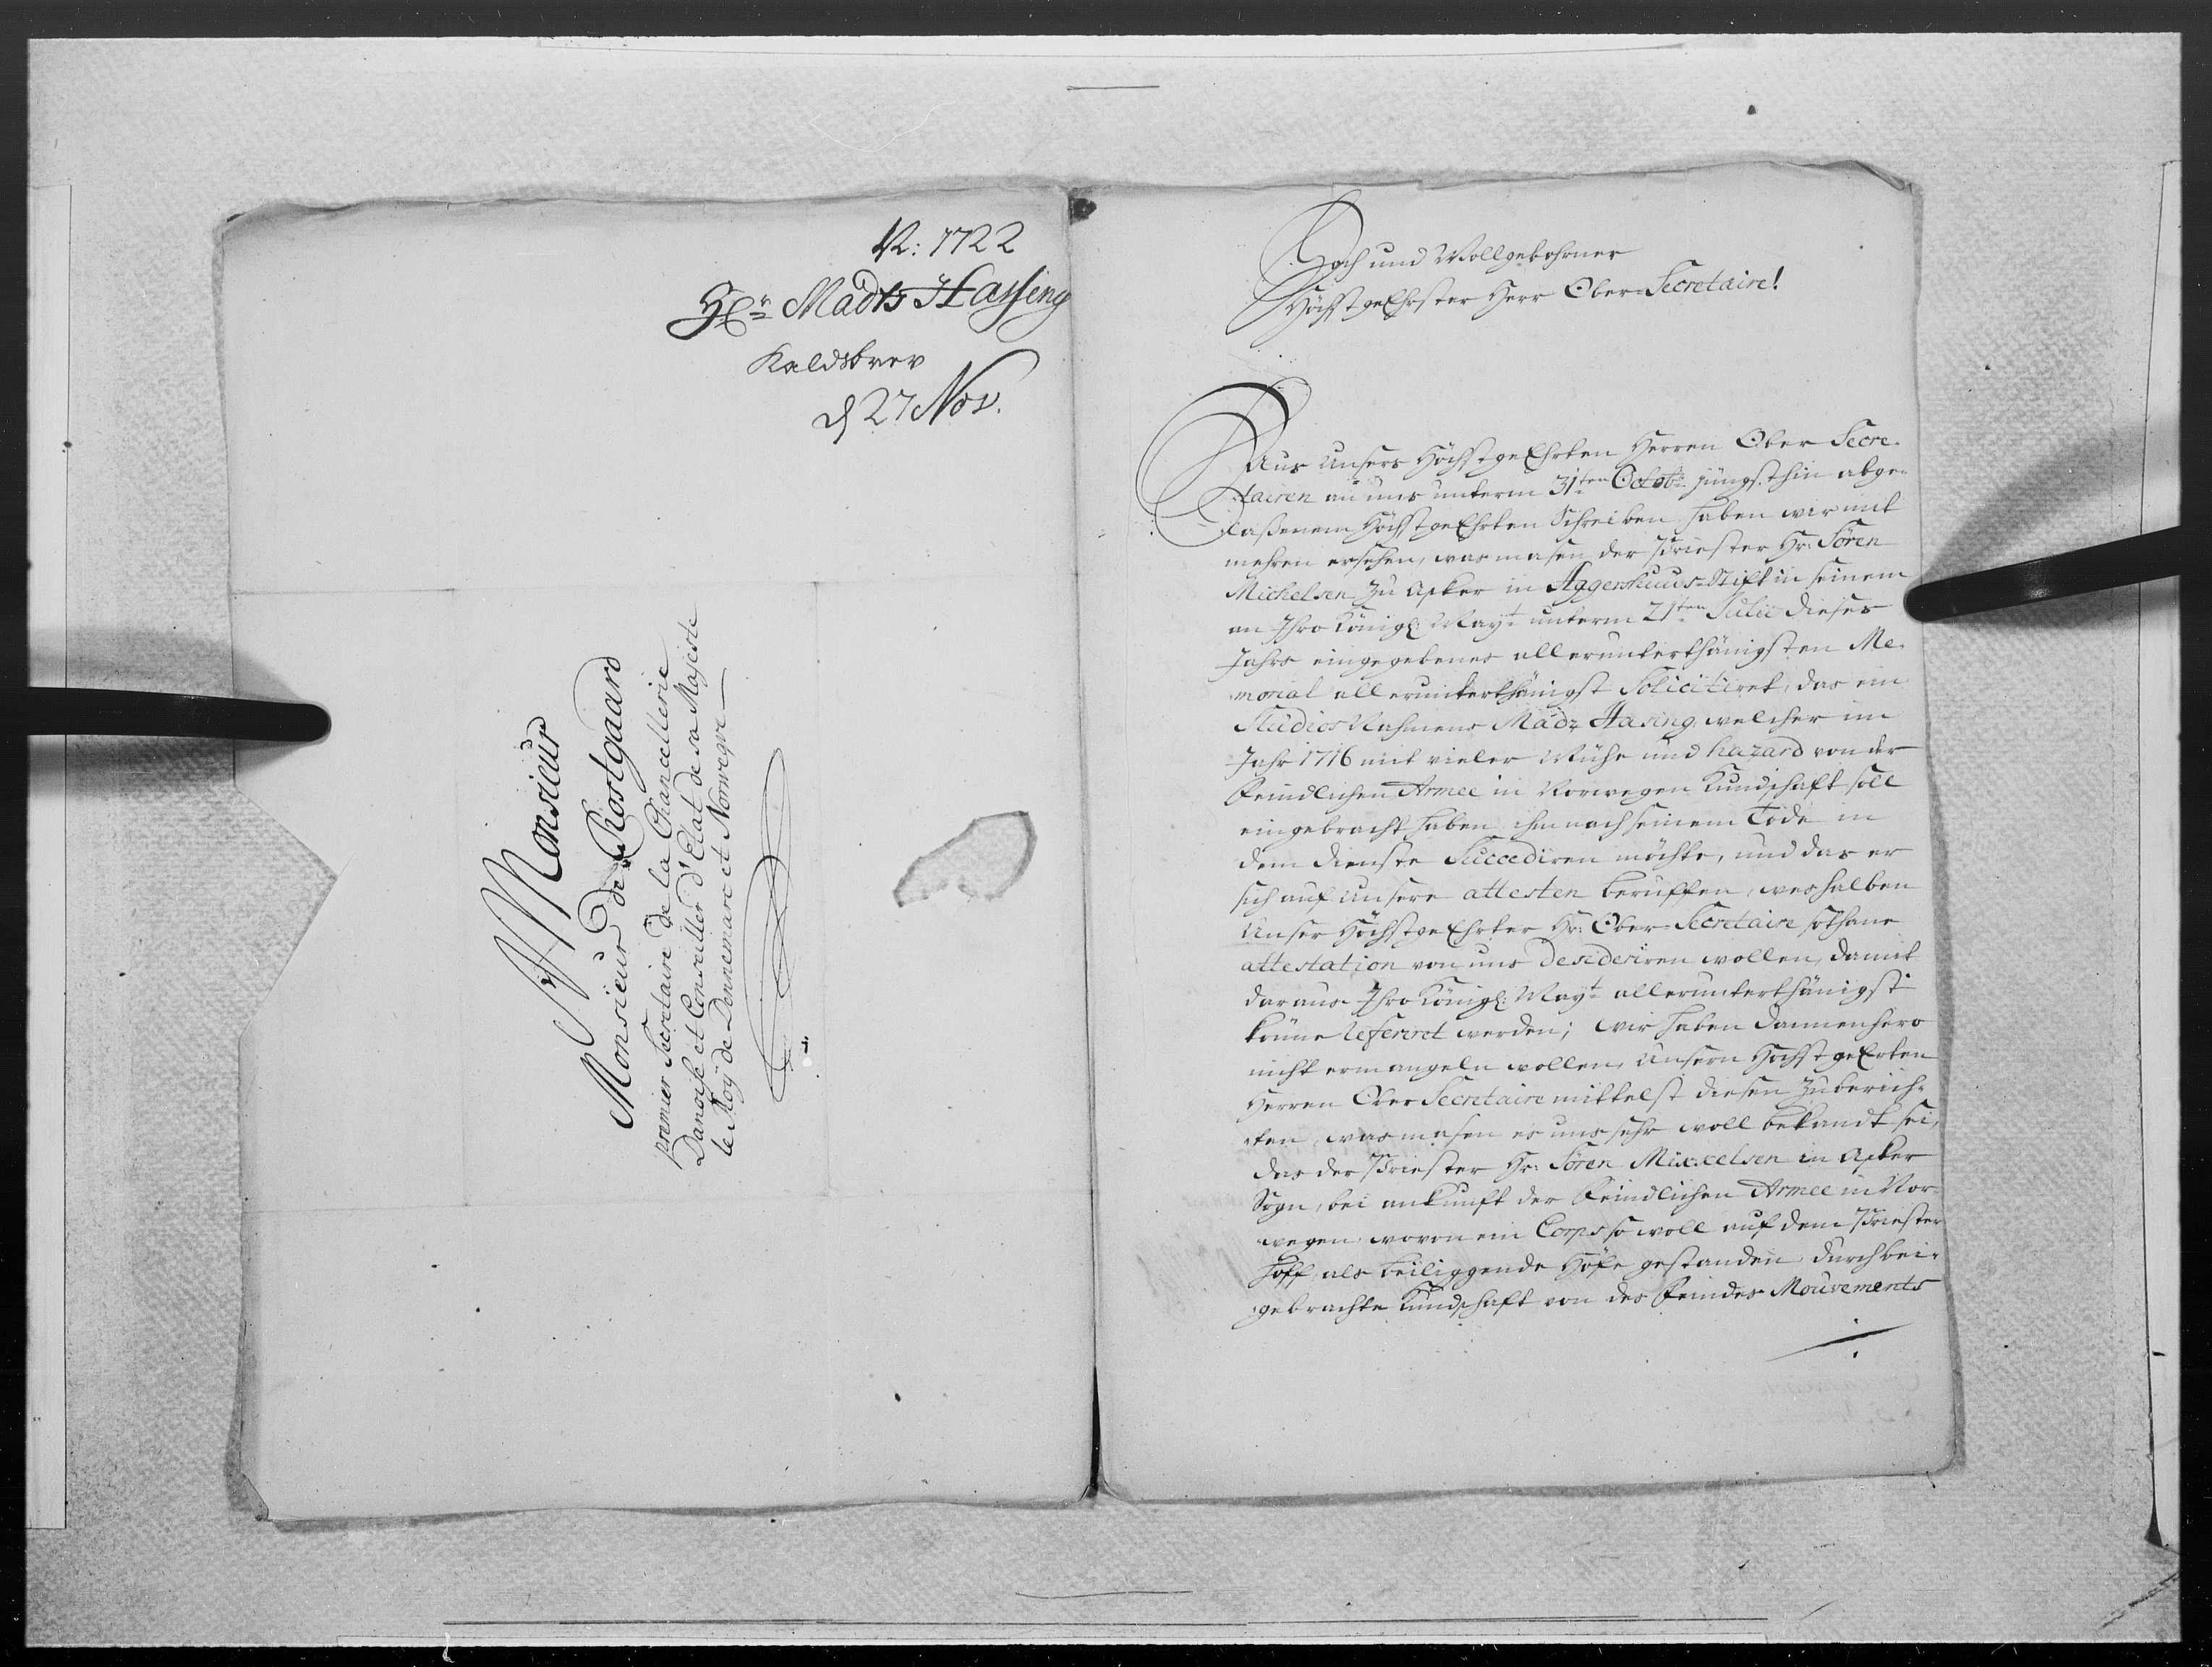 N: 1722
Hr Madts Hassing
Kaldsbrev
d 27 Nov.
A Monsieur
Monsieur de Rostgaard
premier Secretaire de la Chancellerie
Danoise et Conseiller d'Etat de sa Majeste
le Roÿ de Dennemarc et Norwegue
Hoch und Wollgebohrner
HöchstgeEhrster Herr Ober-Secretaire!
Aus Unsers HöchstgeEhrten Herren Ober Secre-
tairen an uns unterm 31ten Octobr jüngsthin abge-
laßenem HöchstgeEhrten Schreiben haben wir mit
mehren ersehen, was masen der Priester Hr: Sören
Michelsen zu Asker in Aggershuus-Stift in seinem
an Ihro Königl: Mayt unterm 21ten Julii dieses
Jahrs eingegebenes allerunterthänigsten Me-
morial allerunterthänigst Soliciteret, das ein
Studios Nahmens Madz Hasing, welcher im
Jahr 1716 mit vieler Mühe und hazard von der
Feindlichen Armee in Norwegen Kundschaft soll
eingebracht haben ihm nach seinem Tode in
dem Dienste Succediren möchte, und das er
sich auf Unsere attesten beruffen, weshalben
Unser HöchstgeEhrter Hr: Ober-Secretaire sothane
attestation von uns desideriren wollen, damit
daraus Ihro Königl: Mayt allerunterthänigst
könne referiret werden; wir haben dannenhero
nicht ermangeln wollen, Unsern HöchstgeErten
Herren Ober Secretaire mittelst diesen zu berich-
ten, was masen es uns sehr woll bekandt sei,
das der Priester Hr: Sören Mixxelsen in Asker
Sogn, bei ankunft der Feindlichen Armee in Nor-
wegen, wovon ein Corps so woll auf dem Priester
hoff, als beiliggende Höfe gestanden durch bei-
gebrachte Kundschaft von des Feindes Mouvements